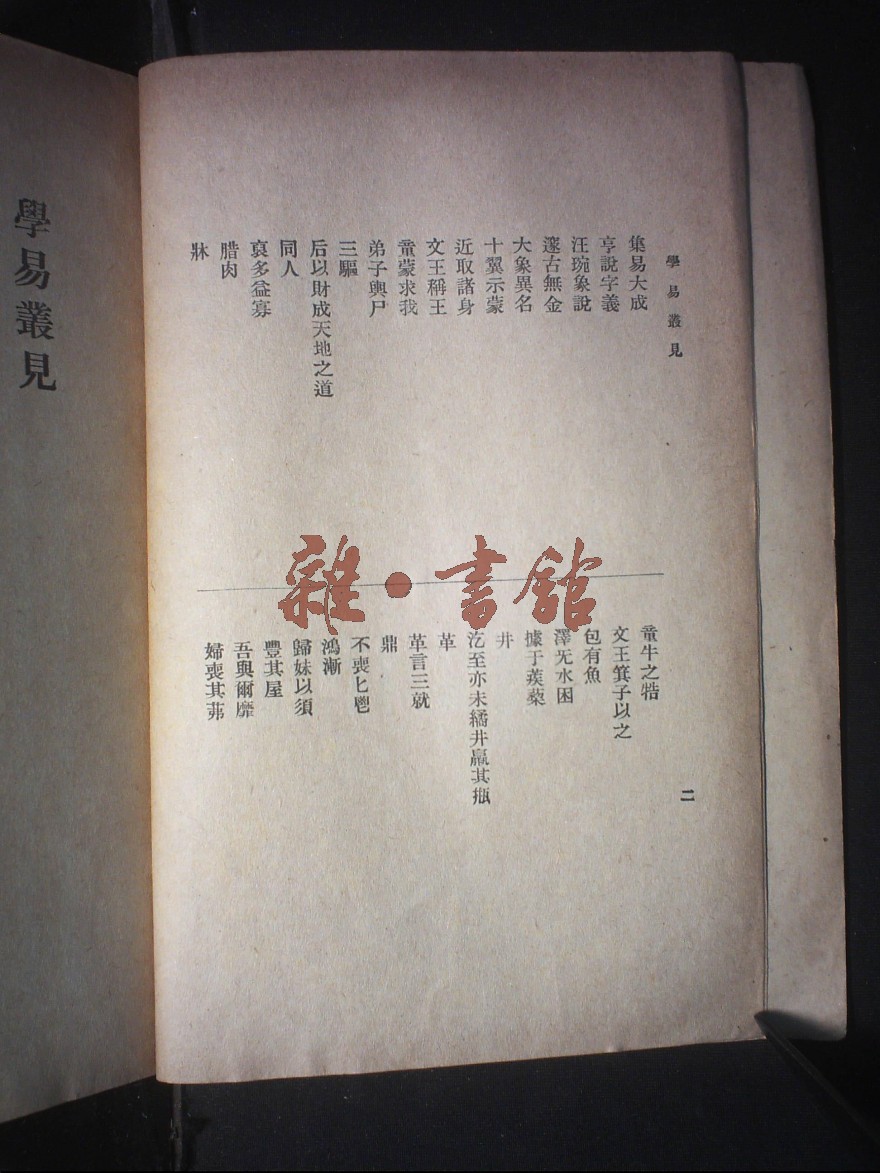 學易叢見
學易叢見
集易大成
亨說字義
汪琬象說
邃古無金
大象異名
十翼示蒙
近取諸身
文王稱王
童蒙求我
弟子輿尸
三驅
后以財成天地之道
同人
裒多益寡
腊肉
牀
童牛之牿
文王箕子以之
包有魚
澤无水困
據于蒺蔾
井
汔至亦未繘井羸其瓶
革
革言三就
鼎
不喪匕鬯
鴻漸
歸妹以須
豐其屋
吾與爾靡
婦喪其茀
二
雜·書館